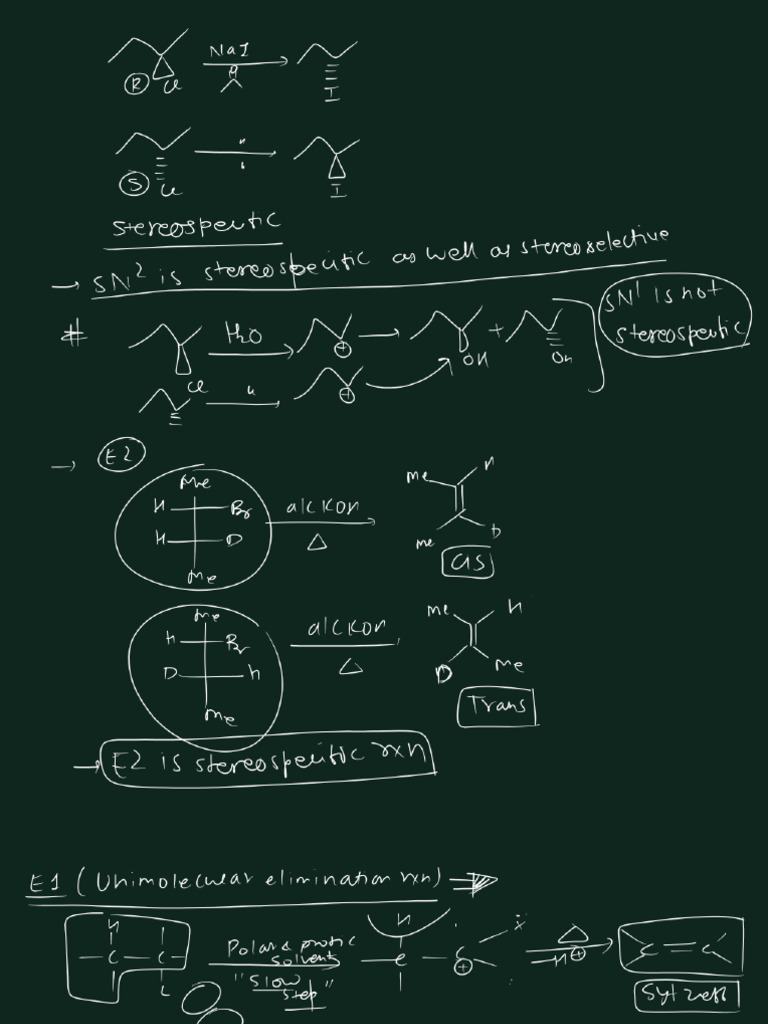 NaI
R Cl
I
S Cl
I
stereospecific
→ SN² is stereospecific as well as stereoselective
# H₂O ⊕ → + SN¹ is not stereospecific
Cl OH OH
⊕
→ E2
Me
H Br alc KOH Me H
H D Δ Me D
Me cis
Me
H Br alc KOH Me H
D H Δ D Me
Me Trans
→ E2 is stereospecific rxn
E1 (Unimolecular elimination rxn) ⇒
H H
-C-C- Polar & protic solvents -C-C⊕ Δ -H⊕ C=C
L "slow step"
Sytzeff